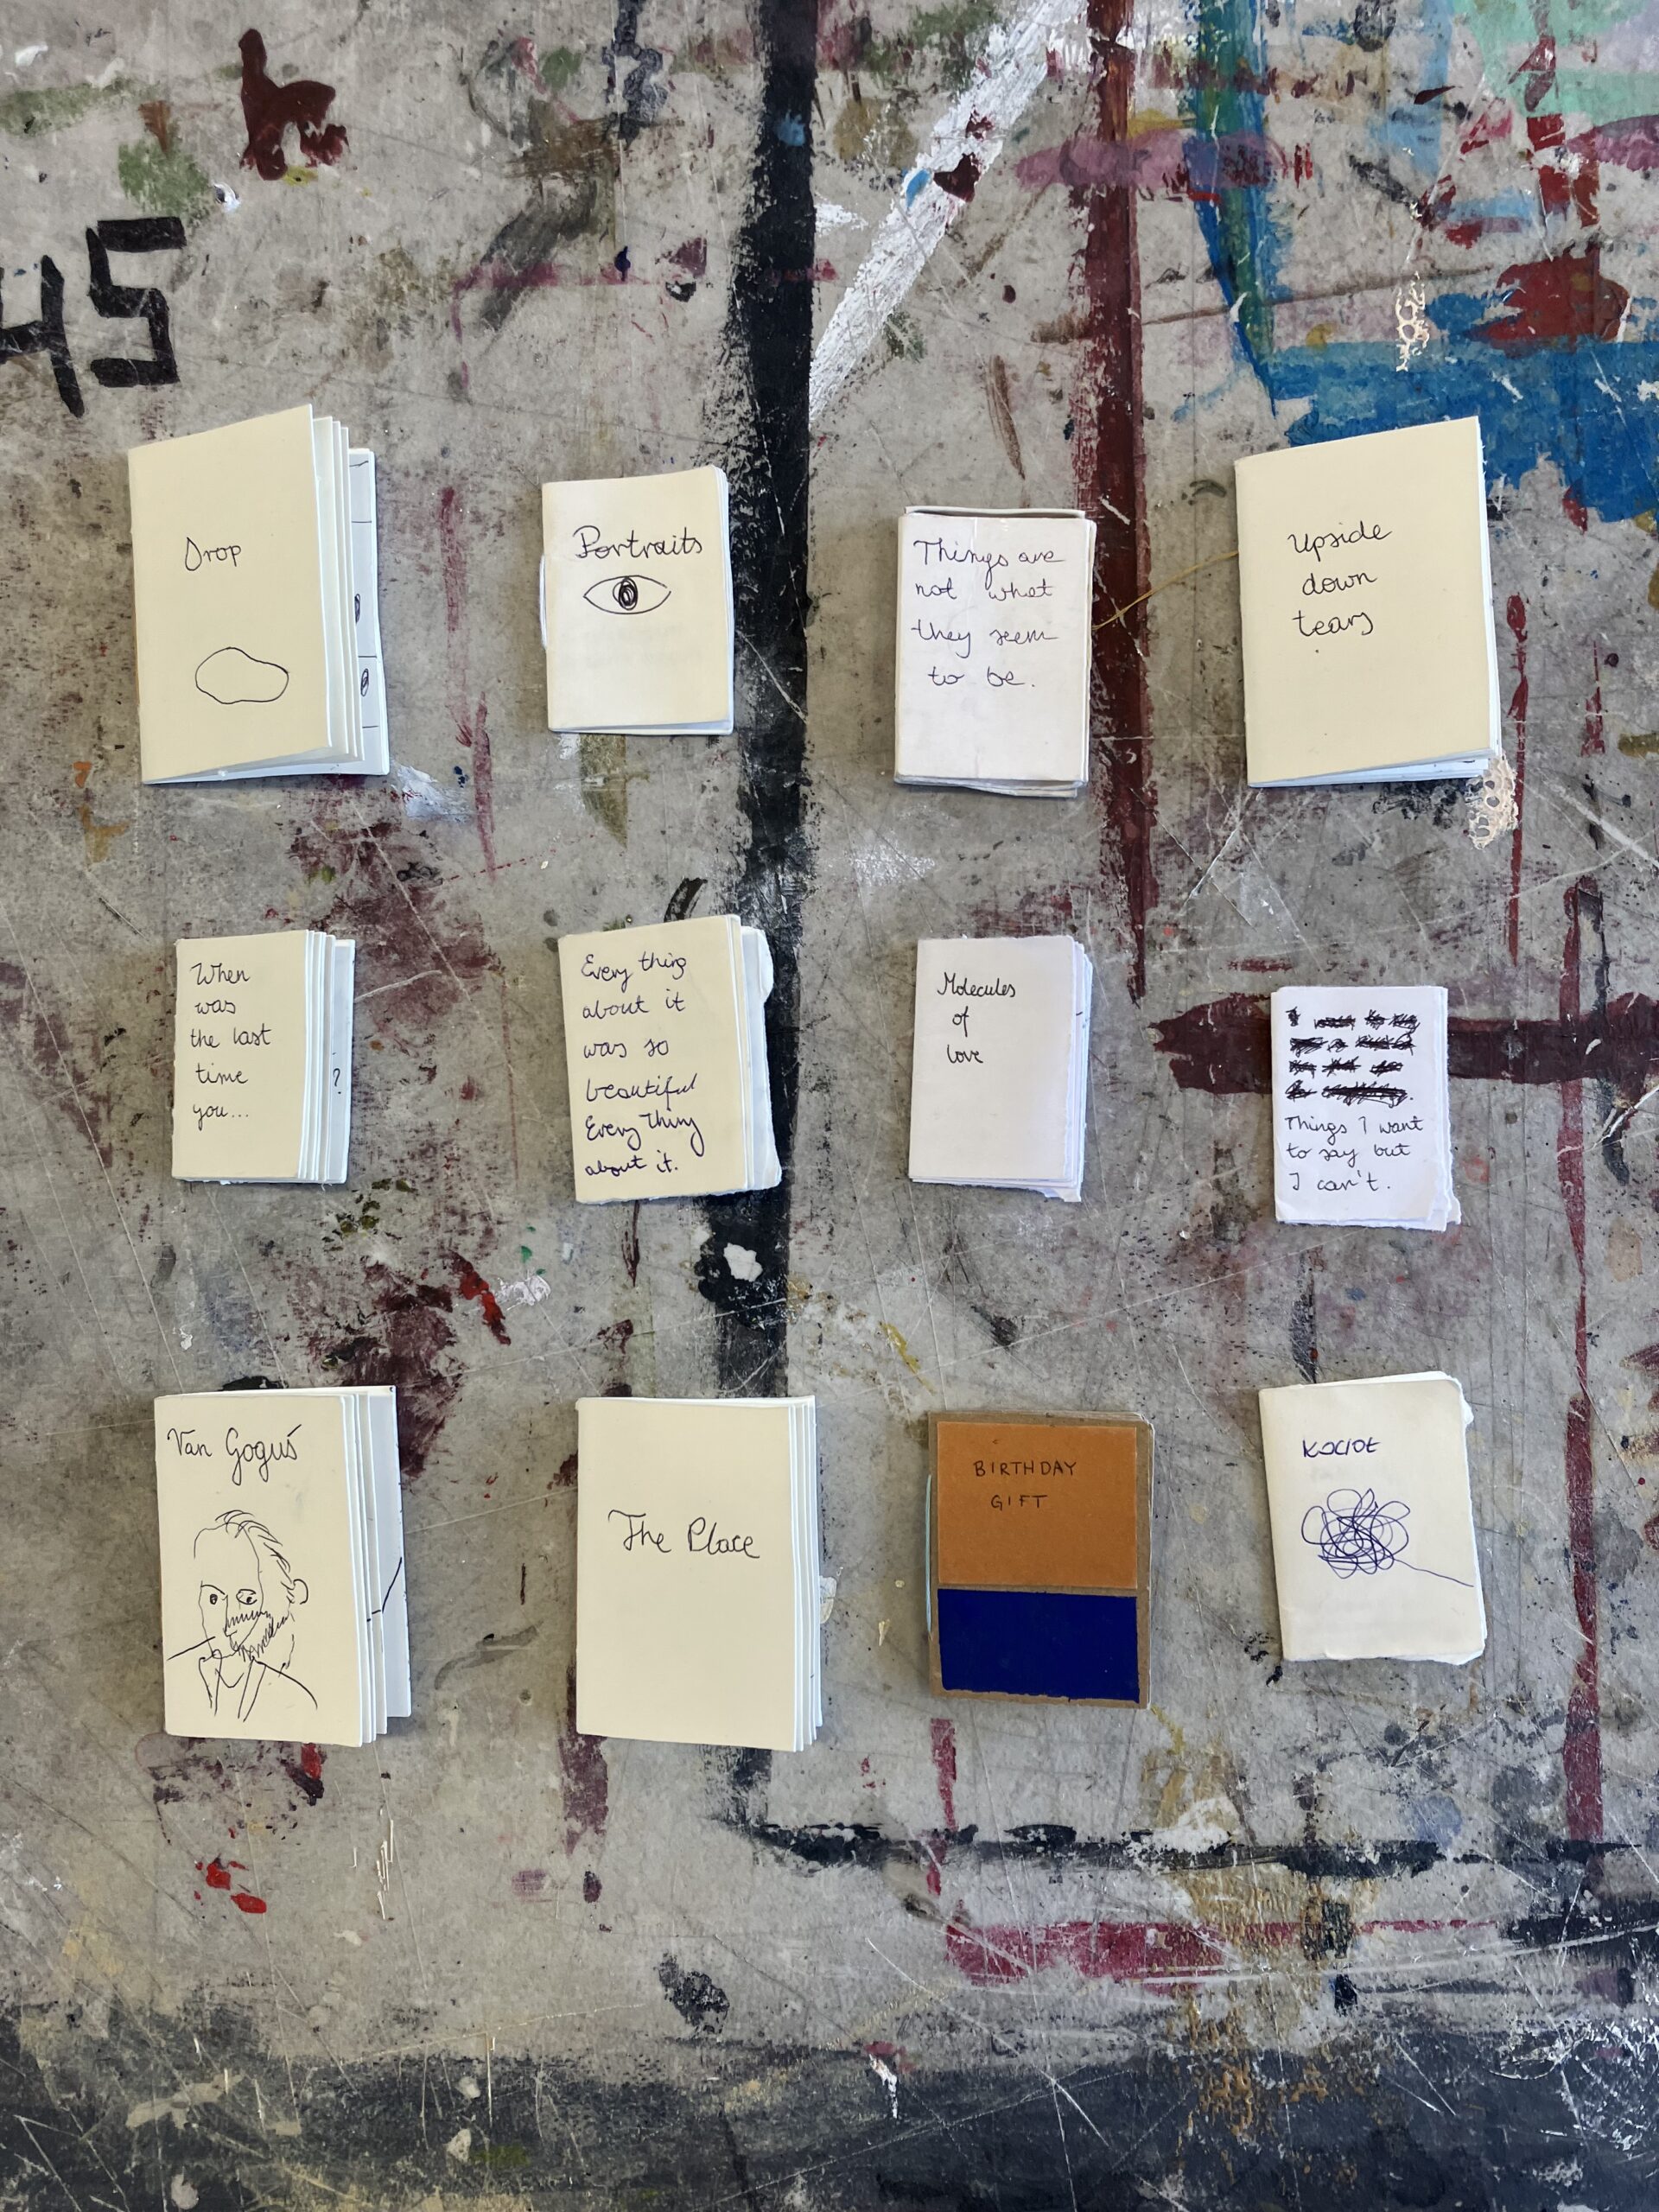 45
Drop
Portraits
Things are
not what
they seem
to be.
Upside
down
tears
When
was
the last
time
you...
?
Every thing
about it
was so
beautiful
Every thing
about it.
Molecules
of
love
I
Things I want
to say but
I can't.
Van Goguś
The Place
BIRTHDAY
GIFT